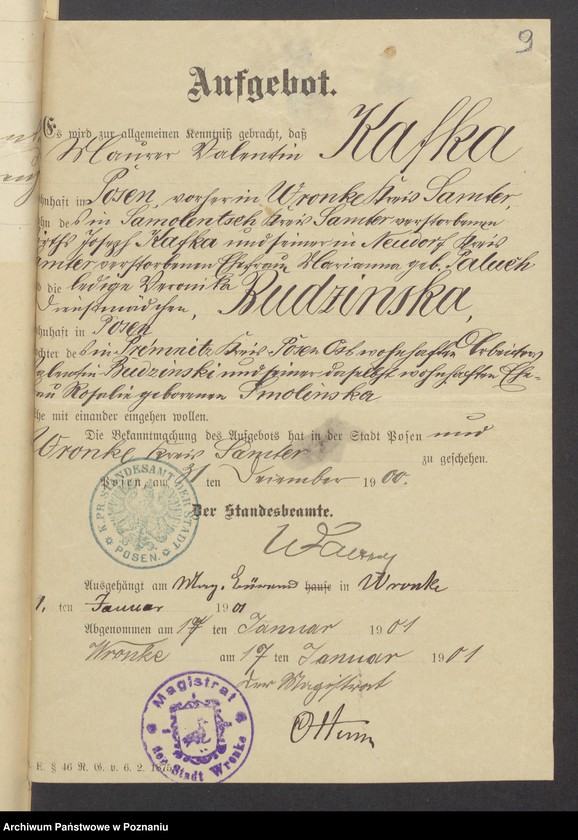 9
Aufgebot.
Es wird zur allgemeinen Kenntniß gebracht, daß
Maurer Valentin Kafka
hnhaft in Posen, vorher in Wronke Kreis Samter,
hn des in Samolentsch Kreis Samter verstorbenen
irths Josef Kafka und seiner in Neudorf Kreis
amter verstorbenen Ehefrau Marianna geb. Paluch
die ledige Veronika
Dienstmädchen, Budzinska,
hnhaft in Posen
chter des in Premnitz Kreis Posen Ost wohnhaften Arbeiters
Budzinski und seiner daselbst wohnhaften Ehe-
au Rosalie geborenen Smolinska
he mit einander eingehen wollen.
Die Bekanntmachung des Aufgebots hat in der Stadt Posen und
Wronke Kreis Samter zu geschehen.
Posen, am 31 ten Dezember 1900.
Der Standesbeamte.
K. PR. STANDESAMT DER STADT POSEN.
Ausgehängt am Mag. Büreau hause in Wronke
1. ten Januar 1901
Abgenommen am 17 ten Januar 1901
Wronke am 17 ten Januar 1901
Der Magistrat
Magistrat der Stadt Wronke
E. § 46 R. G. v. 6. 2. 1875
Archiwum Państwowe w Poznaniu